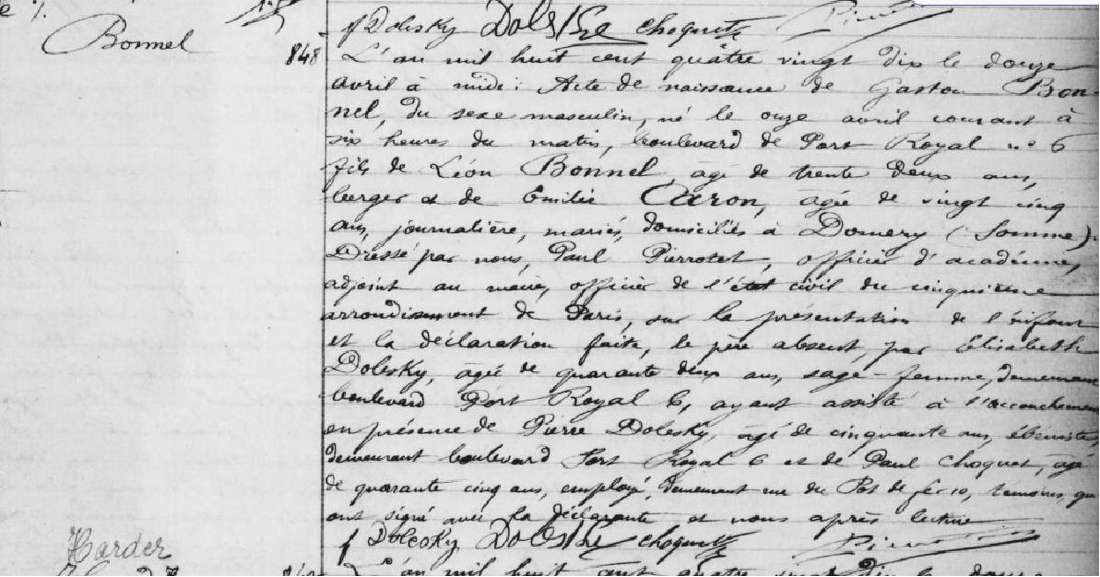 f Dolesky Dolesky Choquet
Bonnel
848
L'an mil huit cent quatre vingt dix le douze
avril à midi : Acte de naissance de Gaston Bon-
nel, du sexe masculin, né le onze avril courant à
six heures du matin, boulevard de Port Royal n° 6
fils de Léon Bonnel, âgé de trente deux ans,
berger & de Emilie Caron, âgée de vingt cinq
ans, journalière, mariés, domiciliés à Doméry (Somme).
Dressé par nous, Paul Pierrotet, officier d'académie,
adjoint au maire, officier de l'état civil du cinquième
arrondissement de Paris, sur la présentation de l'enfant
et la déclaration faite, le père absent, par Elisabeth
Dolesky, âgée de quarante deux ans, sage-femme, demeurant
boulevard Port Royal 6, ayant assisté à l'accouchement
en présence de Pierre Dolesky, âgé de cinquante ans, ébéniste,
demeurant boulevard Port Royal 6 et de Paul Choquet, âgé
de quarante cinq ans, employé, demeurant rue du Pot de fer 10, témoins, qui
ont signé avec la déclarante et nous après lecture
f Dolesky Choquet
Harder
L'an mil huit cent quatre vingt dix le douze